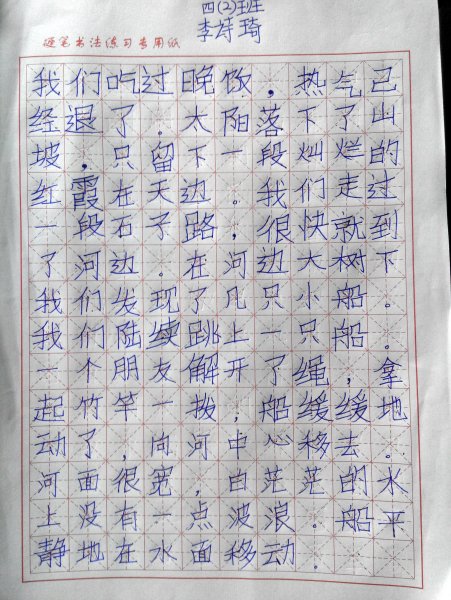 四(2)班
李诗琦
硬笔书法练习专用纸
我们吃过晚饭，热气已
经退了。太阳落下了山
坡，只留下一段灿烂的
红霞在天边。我们走过
一段石子路，很快就到
了河边。在河边大树下
我们发现了几只小船。
我们陆续跳上一只船。
一个朋友解开了绳，拿
起竹竿一拨，船缓缓地
动了，向河中心移去。
河面很宽，白茫茫的水
上没有一点波浪。船平
静地在水面移动。